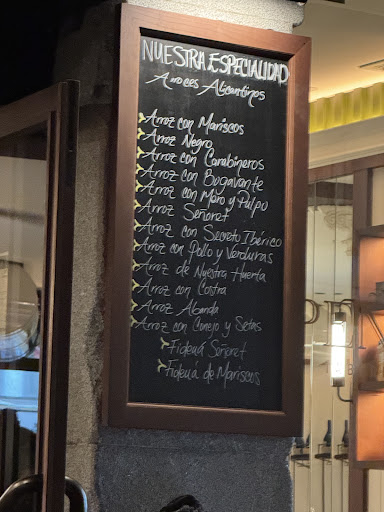 NUESTRA ESPECIALIDAD
Arroces Alicantinos
Arroz con Mariscos
Arroz Negro
Arroz con Carabineros
Arroz con Bogavante
Arroz con Mero y Pulpo
Arroz Señoret
Arroz con Secreto Ibérico
Arroz con Pollo y Verduras
Arroz de Nuestra Huerta
Arroz con Costra
Arroz Abanda
Arroz con Conejo y Setas
Fideuá Señoret
Fideuá de Mariscos